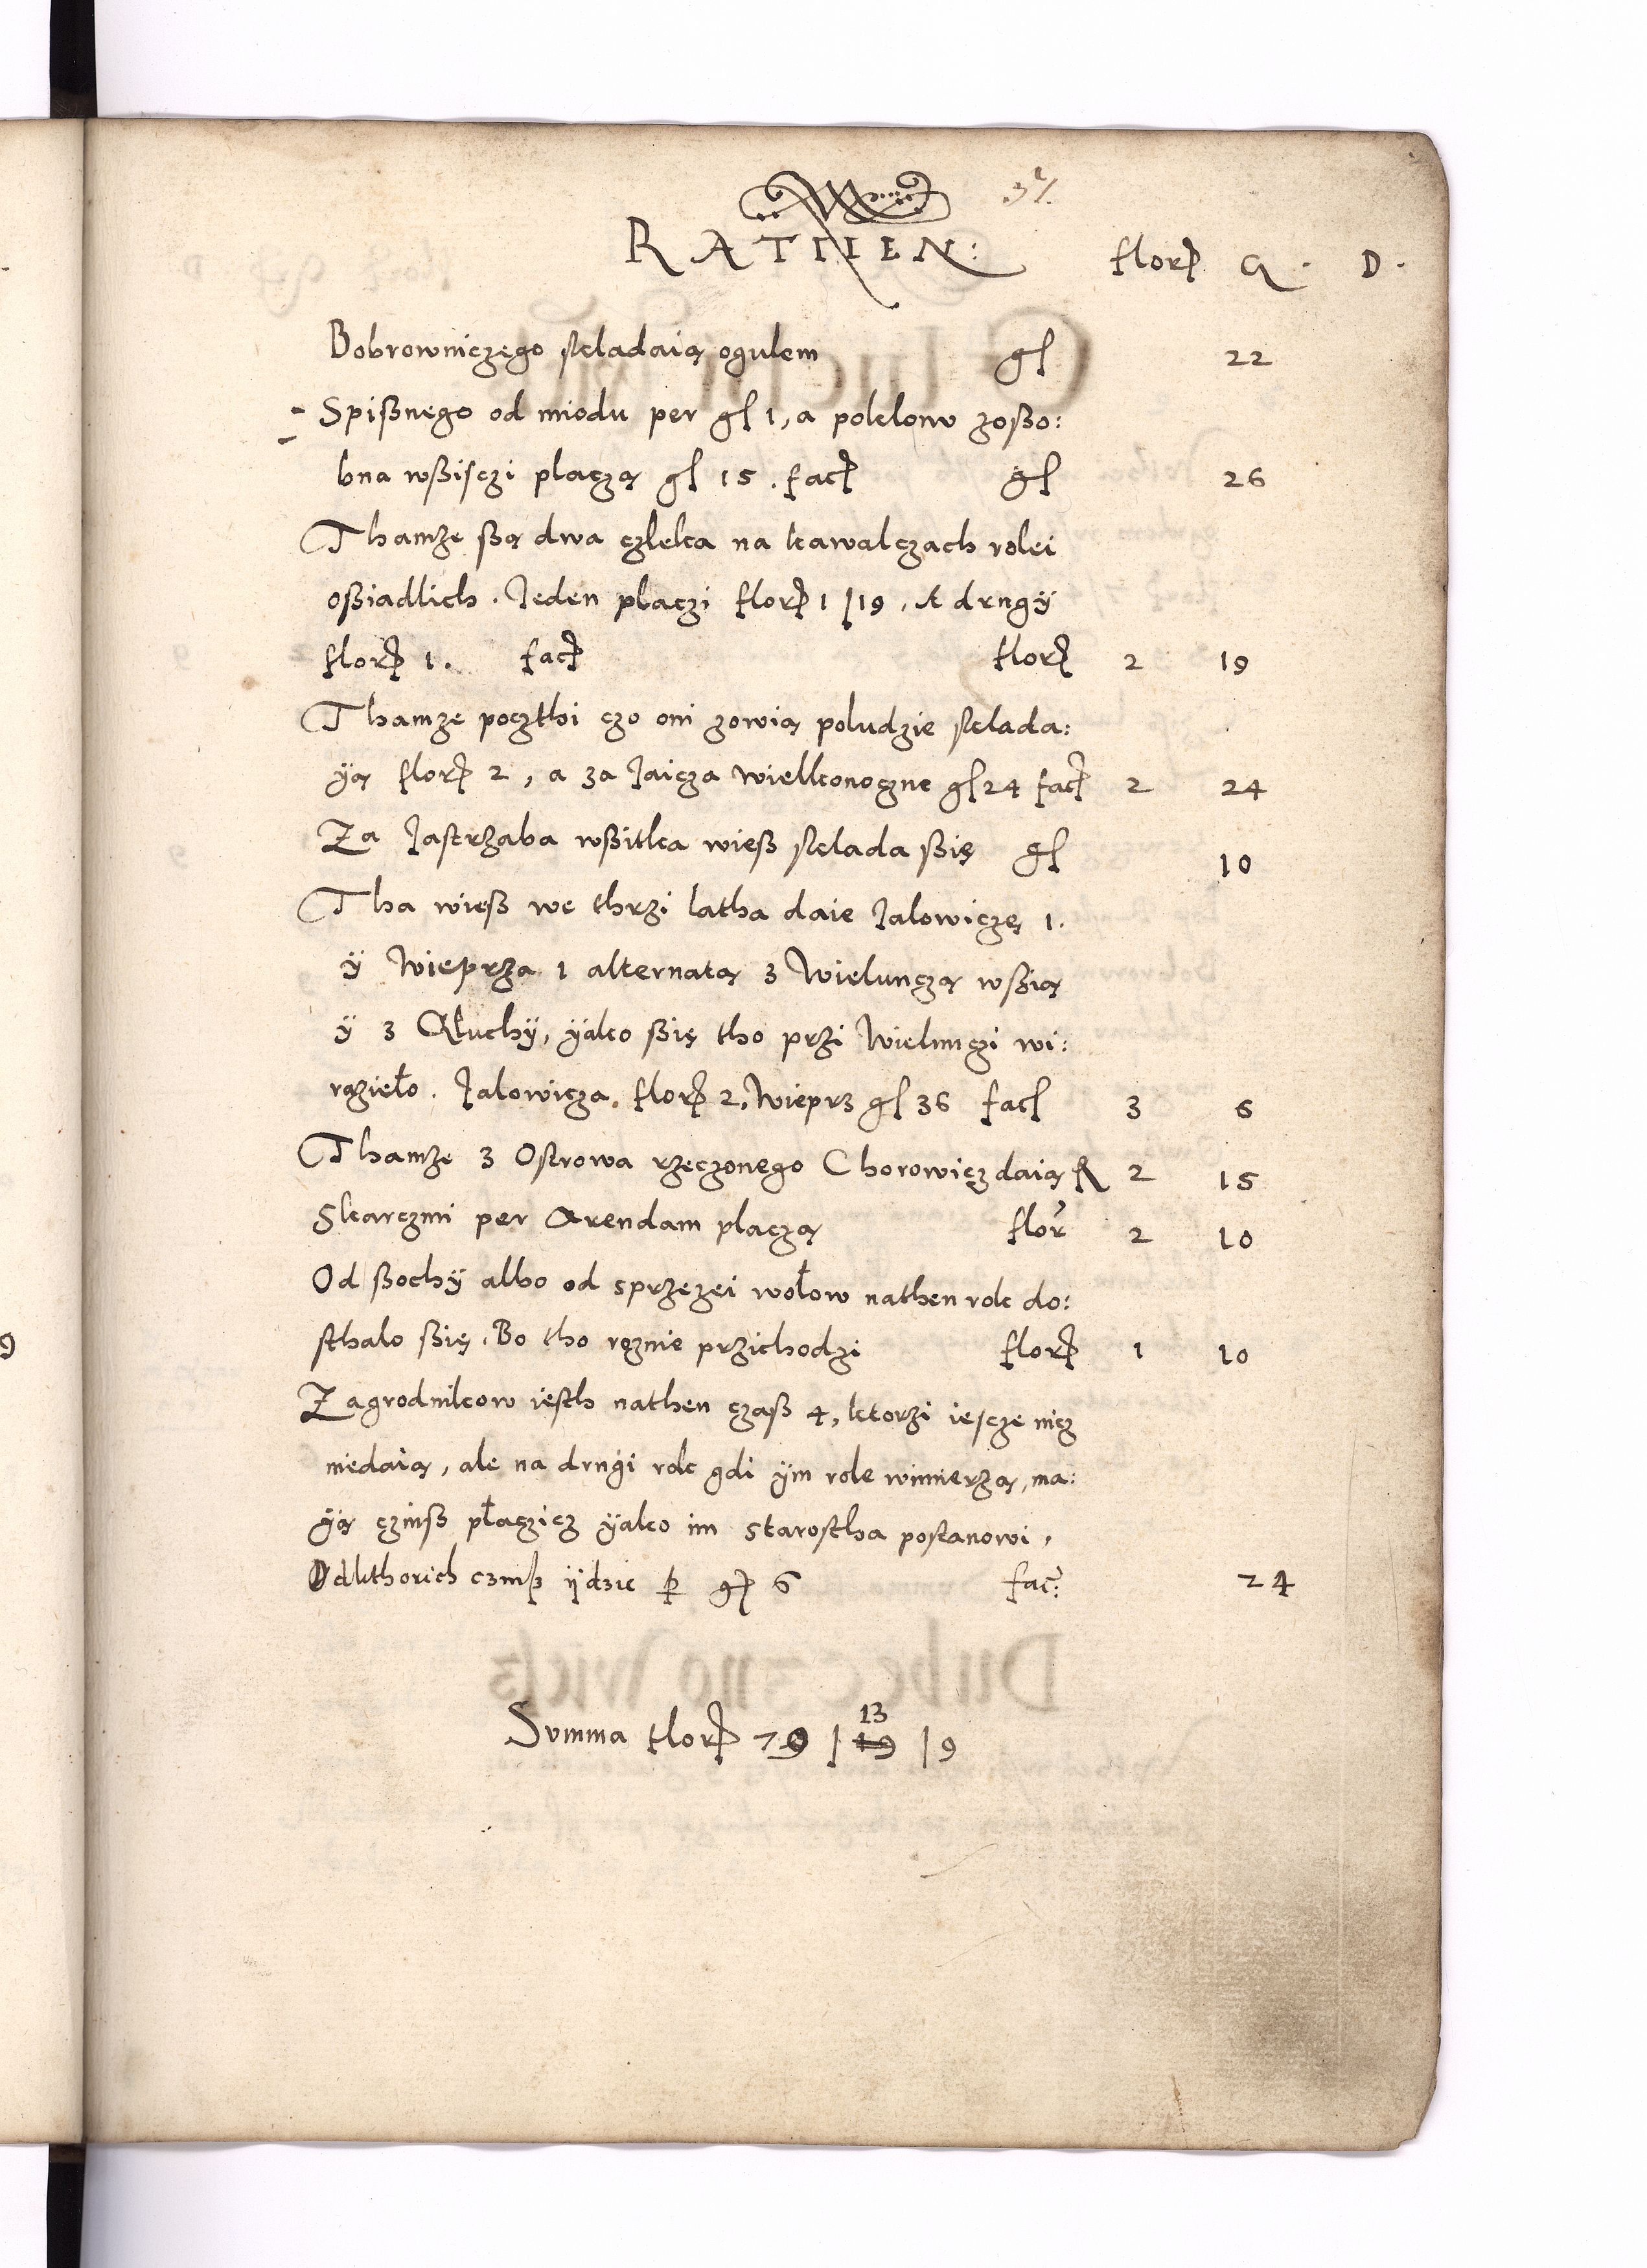 RATHEN: florz G. D.
Bobrowniczego skladaią ogulem gſ 22
Spißnego od miodu per gſ 1, a poklonw zoßo:
bna wßisczi placzą gſ 15. facz gſ 26
Thamże ßą dwa człeka na kawalczach rolei
oßiadlich. Jeden placzi florz 1 | 19, A drugÿ
florz 1. facz florz 2 19
Thamże poczthi czo oni zowią poludzie sklada:
ÿą florz 2, a za Jaicza wielkonoczne gſ 24 facz 2 24
Za Jastrzaba wßitka wieß sklada ßię gſ 10
Tha wieß we thrzi latha daie Jalowiczę 1.
ÿ Wieprza 1 alternatą z Wielunczą wßią
ÿ z Głuchÿ, ÿako ßię tho przi Wielunczi wi:
razieło. Jalowicza florz 2, Wieprz gſ 36 facſ 3 6
Thamże z Ostrowa rzeczonego Chorowicz daią fl 2 15
Skarczmi per Arendam placzą flor 2 10
Od ßochÿ albo od sprzężei wołow nathen rok do:
sthalo ßię. Bo tho rożnie przichodzi florz 1 10
Zagrodnikow iesth nathen czaß 4, ktorzi iescze nicz
niedaią, ale na drugi rok gdi ÿm role wimierzą, ma:
ÿą czinß płaczicz ÿako im starostha postanowi.
Odkthorich czinß ijdzie p gz 6 fac: 24
Summa florz 79 | 13 19 | 9